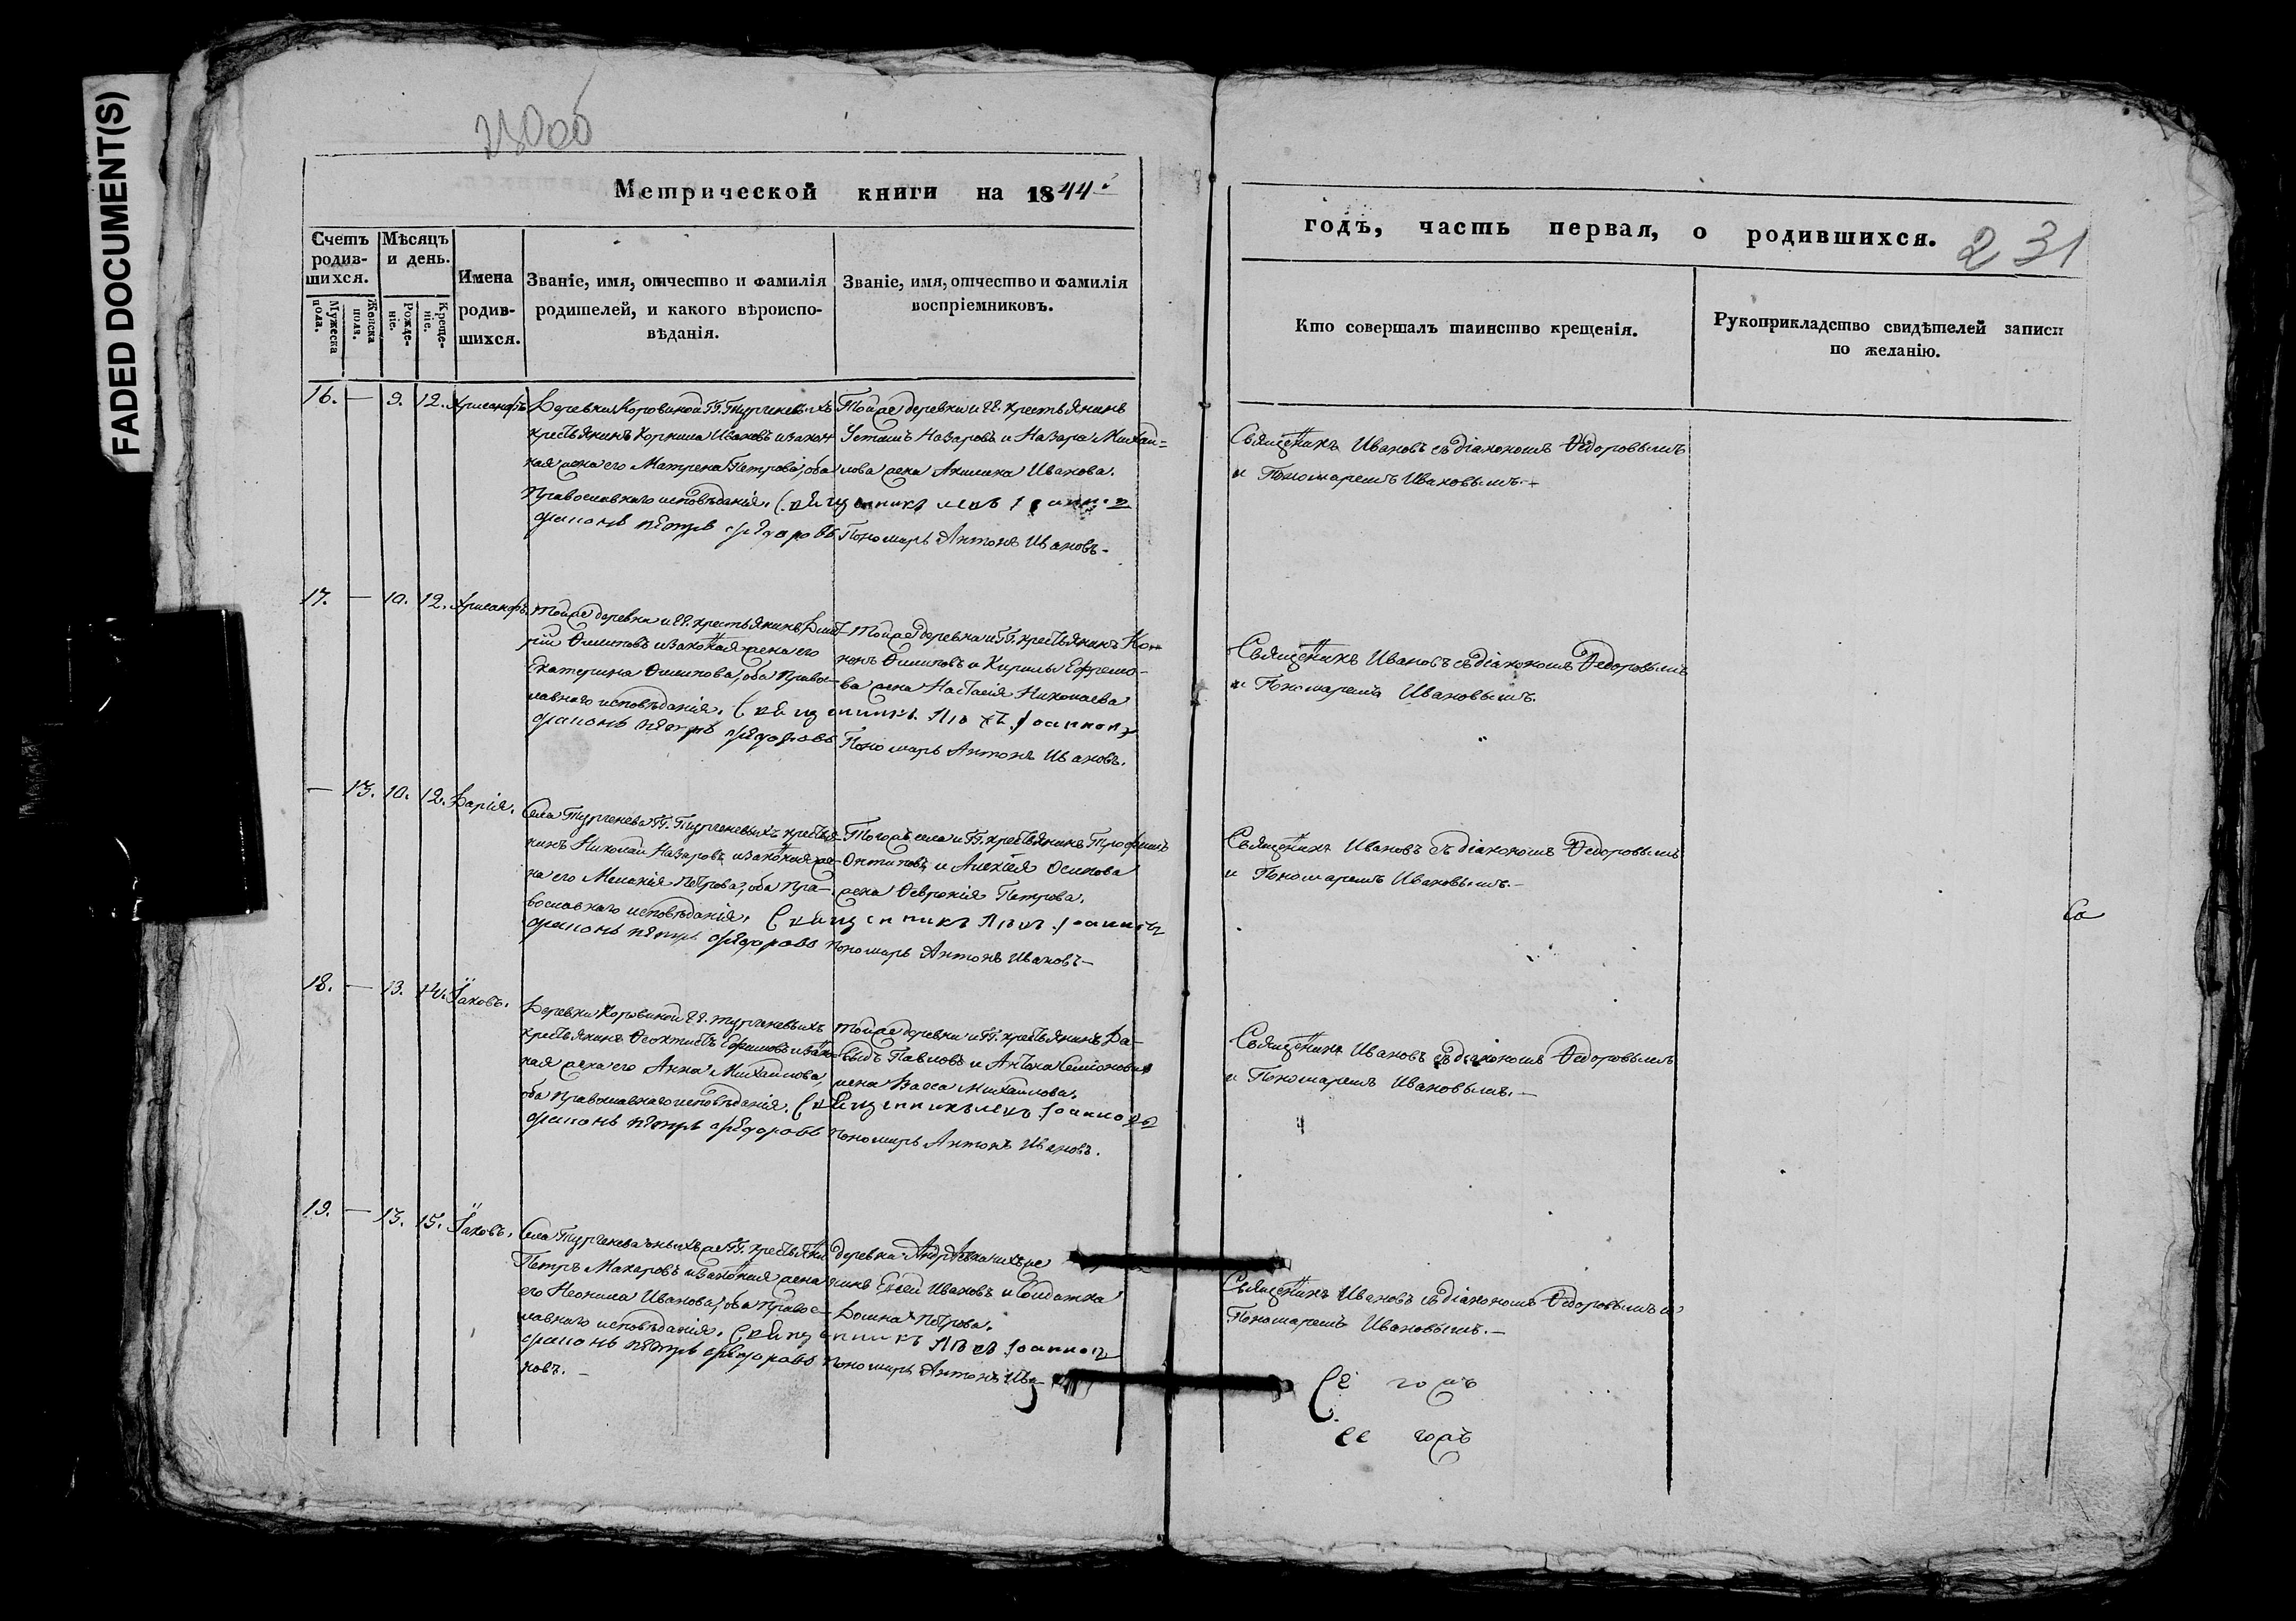 FADED DOCUMENT(S)
230об
Метрической книги на 1844й
годъ, часть первая, о родившихся.
231
Счетъ родив-шихся.
Мужеска пола.
Женска пола.
Мѣсяцъ и день.
Рожде-ніе.
Креще-ніе.
Имена родив-шихся.
Званіе, имя, отчество и фамилія
родителей, и какого вѣроиспо-
вѣданія.
Званіе, имя, отчество и фамилія
воспріемниковъ.
Кто совершалъ таинство крещенія.
Рукоприкладство свидѣтелей записи
по желанію.
16. — 9. 12. Хрисанфъ
Деревки Коровиной ГГ. Тургеневыхъ
крестьянинъ Корнила Ивановъ и закон
ная жена его Матрена Петрова, оба
Православнаго исповѣданія.
Тойже деревни и ГГ. крестьянинъ
Устинъ Назаровъ и Назара Михай=
лова жена Акилина Иванова.
Дьяконъ Петръ Федоровъ Пономарь Антонъ Ивановъ.
Священникъ Ивановъ съ діакономъ Ѳедоровымъ
и Пономаремъ Ивановымъ.
17. — 10. 12. Хрисанфъ.
Тойже деревни и ГГ. крестьянинъ Дмит-
рій Филиповъ и законная жена его
Екатерина Филипова, оба Правос-
лавнаго исповѣданія.
Тойже деревни и ГГ. крестьянинъ Ко-
нонъ Филиповъ и Кирилы Ефремо-
ва жена Настасія Николаева
Дьяконъ Петръ Федоровъ Пономарь Антонъ Ивановъ.
Священникъ Ивановъ съ діакономъ Ѳедоровымъ
и Пономаремъ Ивановымъ.
— 13. 10. 12. Дарія.
Села Тургенева ГГ. Тургеневыхъ крестья-
нинъ Николай Назаровъ и законная же-
на его Меланія Петрова, оба Пра-
вославнаго исповѣданія.
Тогожъ села и ГГ. крестьянинъ Трофимъ
Антиповъ и Алексѣя Осипова
жена Ѳевронія Петрова.
Дьяконъ Петръ Федоровъ Пономарь Антонъ Ивановъ
Священникъ Ивановъ съ діакономъ Ѳедоровымъ
и Пономаремъ Ивановымъ.
18. — 13. 14. Іаковъ.
Деревни Коровиной ГГ. Тургеневыхъ
крестьянинъ Ѳеоктистъ Ефимовъ и закон
ная жена его Анна Михайлова,
оба Православнаго исповѣданія.
Тойже деревни и ГГ. крестьянинъ Да-
выдъ Павловъ и Антона Семіонова
жена Васса Михайлова.
Дьяконъ Петръ Федоровъ Пономарь Антонъ Ивановъ.
Священникъ Ивановъ съ діакономъ Ѳедоровымъ
и Пономаремъ Ивановымъ.
19. — 13. 15. Іаковъ.
Села Тургенева оныхъ же ГГ. крестьянинъ
Петръ Макаровъ и законная жена
его Неонила Иванова, оба Правос-
лавнаго исповѣданія.
Ивановъ и Солдатка
Домна Петрова.
Дьяконъ Петръ Федоровъ Пономарь Антонъ Ива-
новъ.
Священникъ Ивановъ съ діакономъ Ѳедоровымъ и
Пономаремъ Ивановымъ.